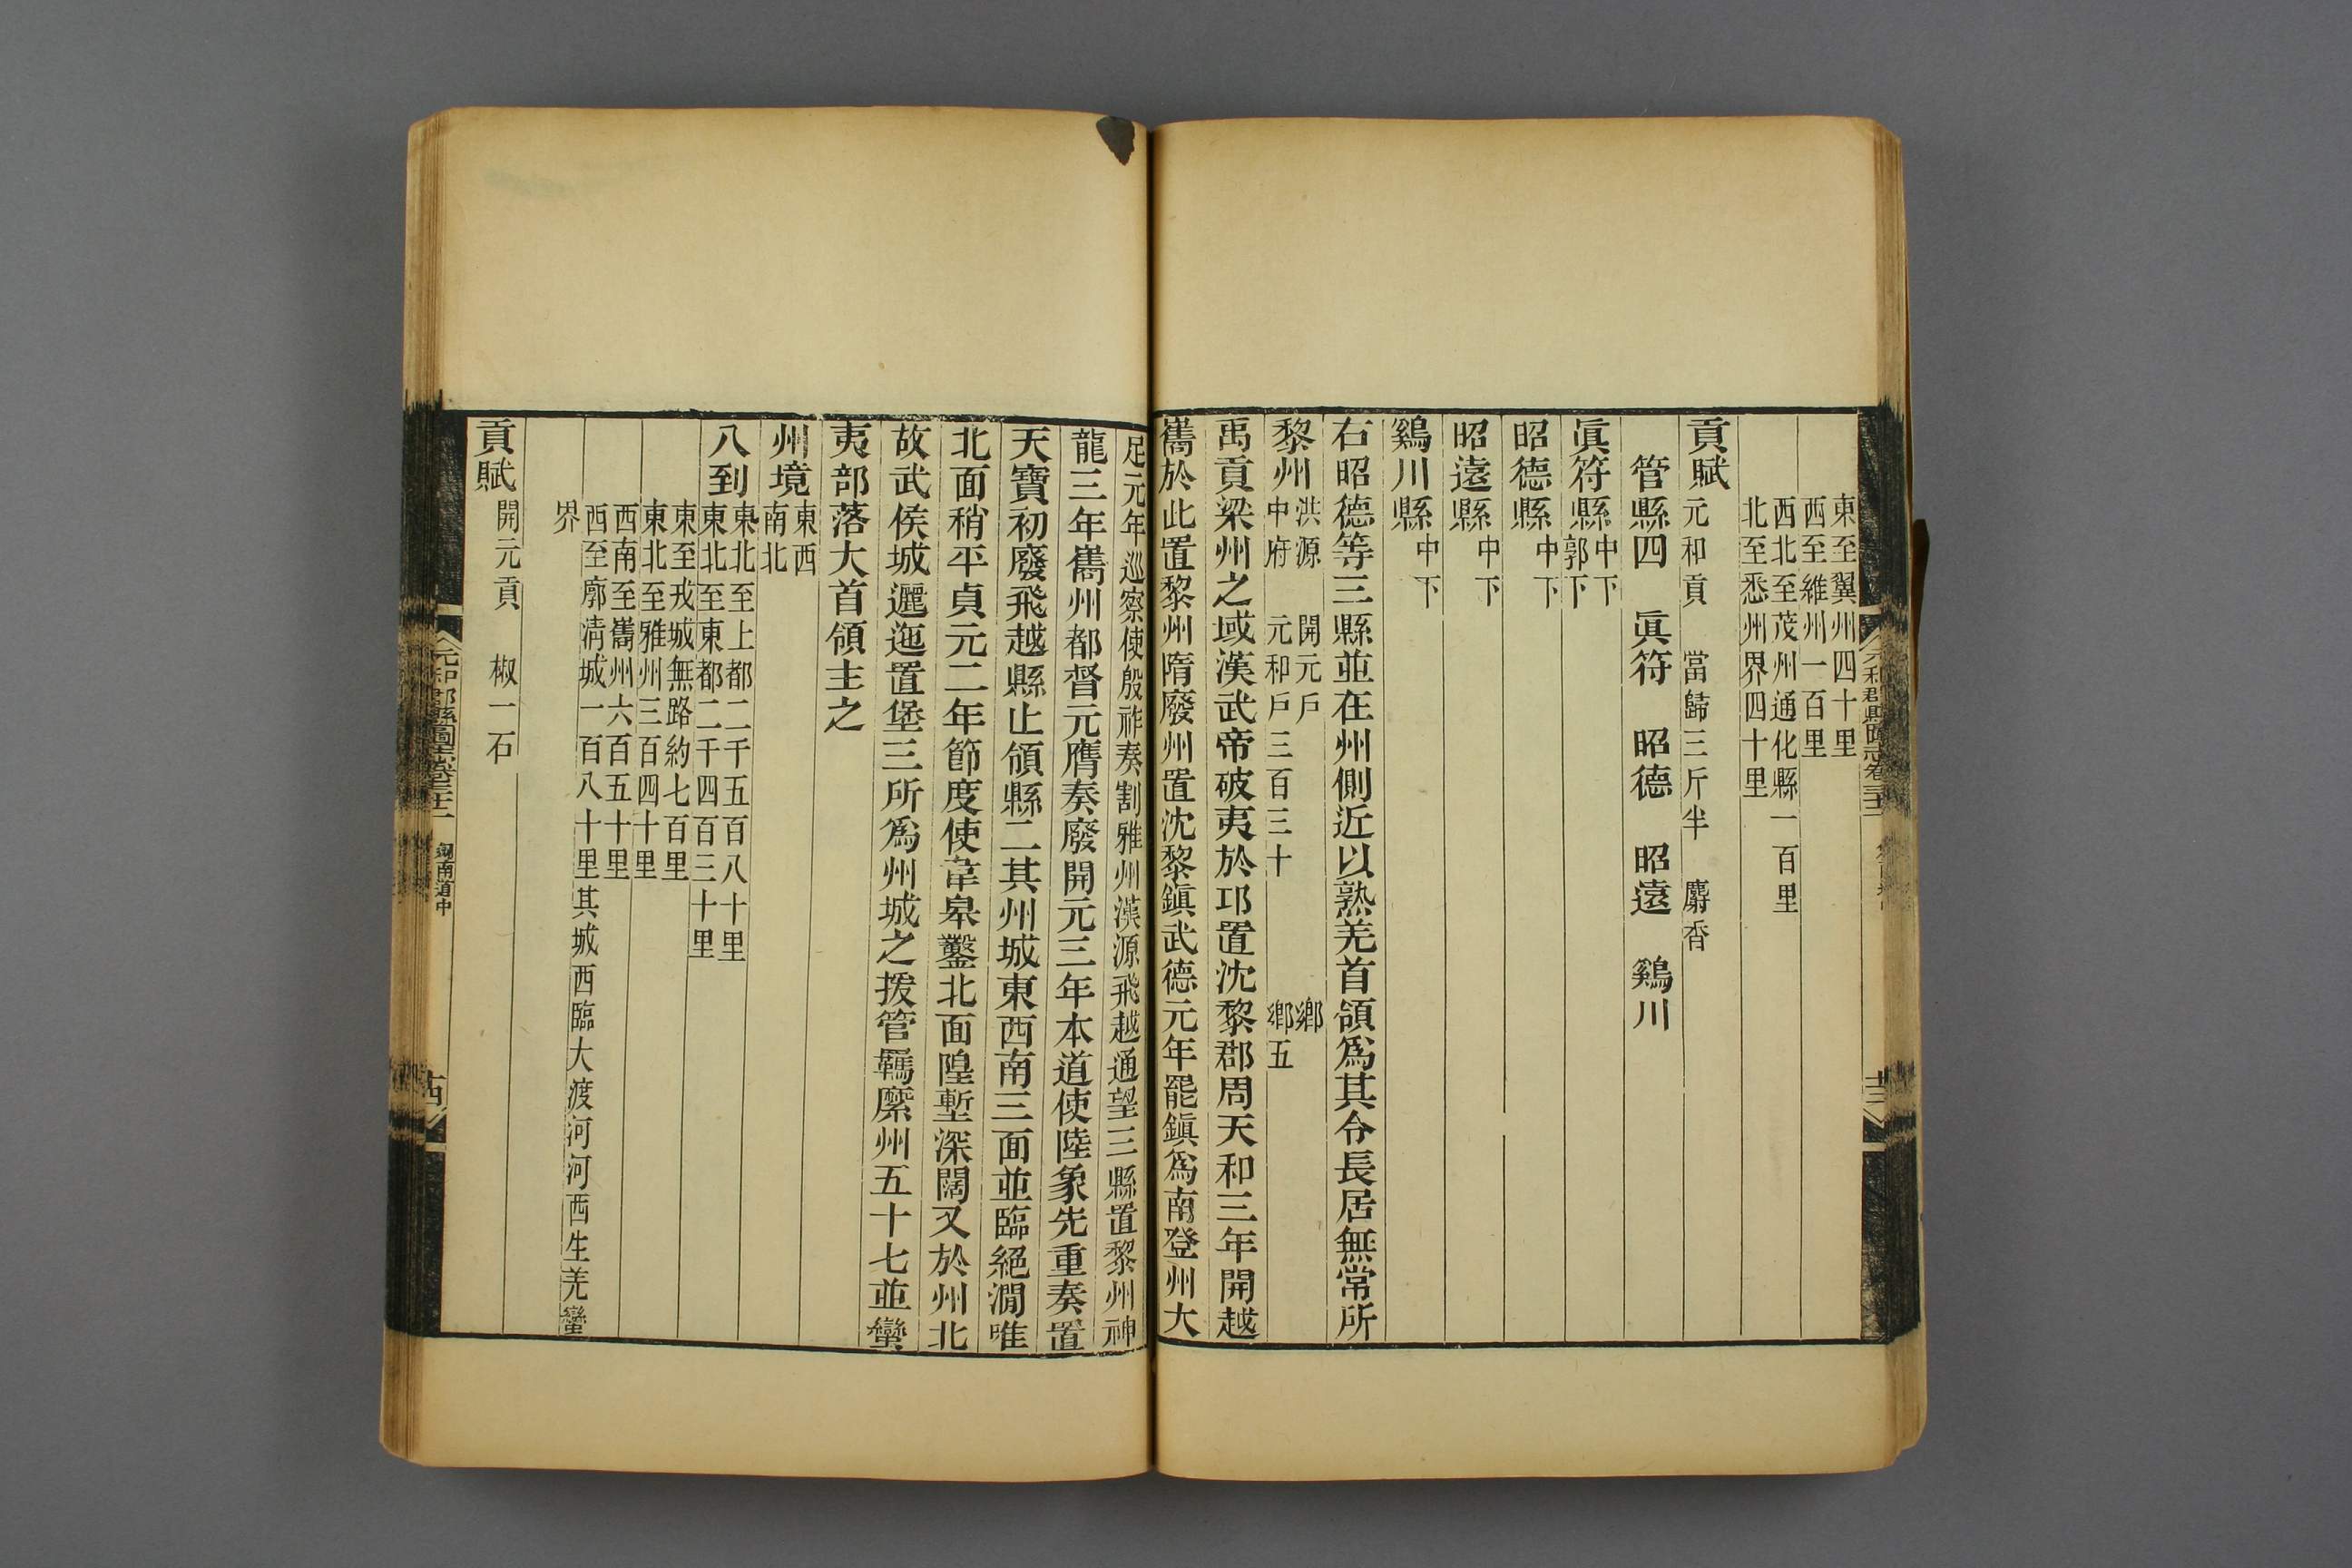 東至翼州四十里
西至維州一百里
西北至茂州通化縣一百里
北至悉州界四十里
貢賦 元和貢 當歸三斤半 麝香
管縣四 眞符 昭德 昭遠 鷄川
眞符縣 中下 郭下
昭德縣 中下
昭遠縣 中下
鷄川縣 中下
右昭德等三縣並在州側近以熟羌首領爲其令長居無常所
黎州 洪源 中府 開元戶 鄉 元和戶三百三十 鄉五
禹貢梁州之域漢武帝破夷於邛置沈黎郡周天和三年開越
巂於此置黎州隋廢州置沈黎鎮武德元年罷鎮爲南登州大
足元年巡察使殷祚奏割雅州漢源飛越通望三縣置黎州神
龍三年巂州都督元膺奏廢開元三年本道使陸象先重奏置
天寶初廢飛越縣止領縣二其州城東西南三面並臨絕澗唯
北面稍平貞元二年節度使韋皋鑿北面隍塹深闊又於州北
故武侯城邐迤置堡三所爲州城之援管羈縻州五十七並蠻
夷部落大首領主之
州境 東西 南北
八到 東北至上都二千五百八十里
東北至東都二千四百三十里
東至戎城無路約七百里
東北至雅州三百四十里
西南至巂州六百五十里
西至廓清城一百八十里其城西臨大渡河河西生羌蠻
界
貢賦 開元貢 椒一石
元和郡縣圖志卷三十二 劍南道中 十四